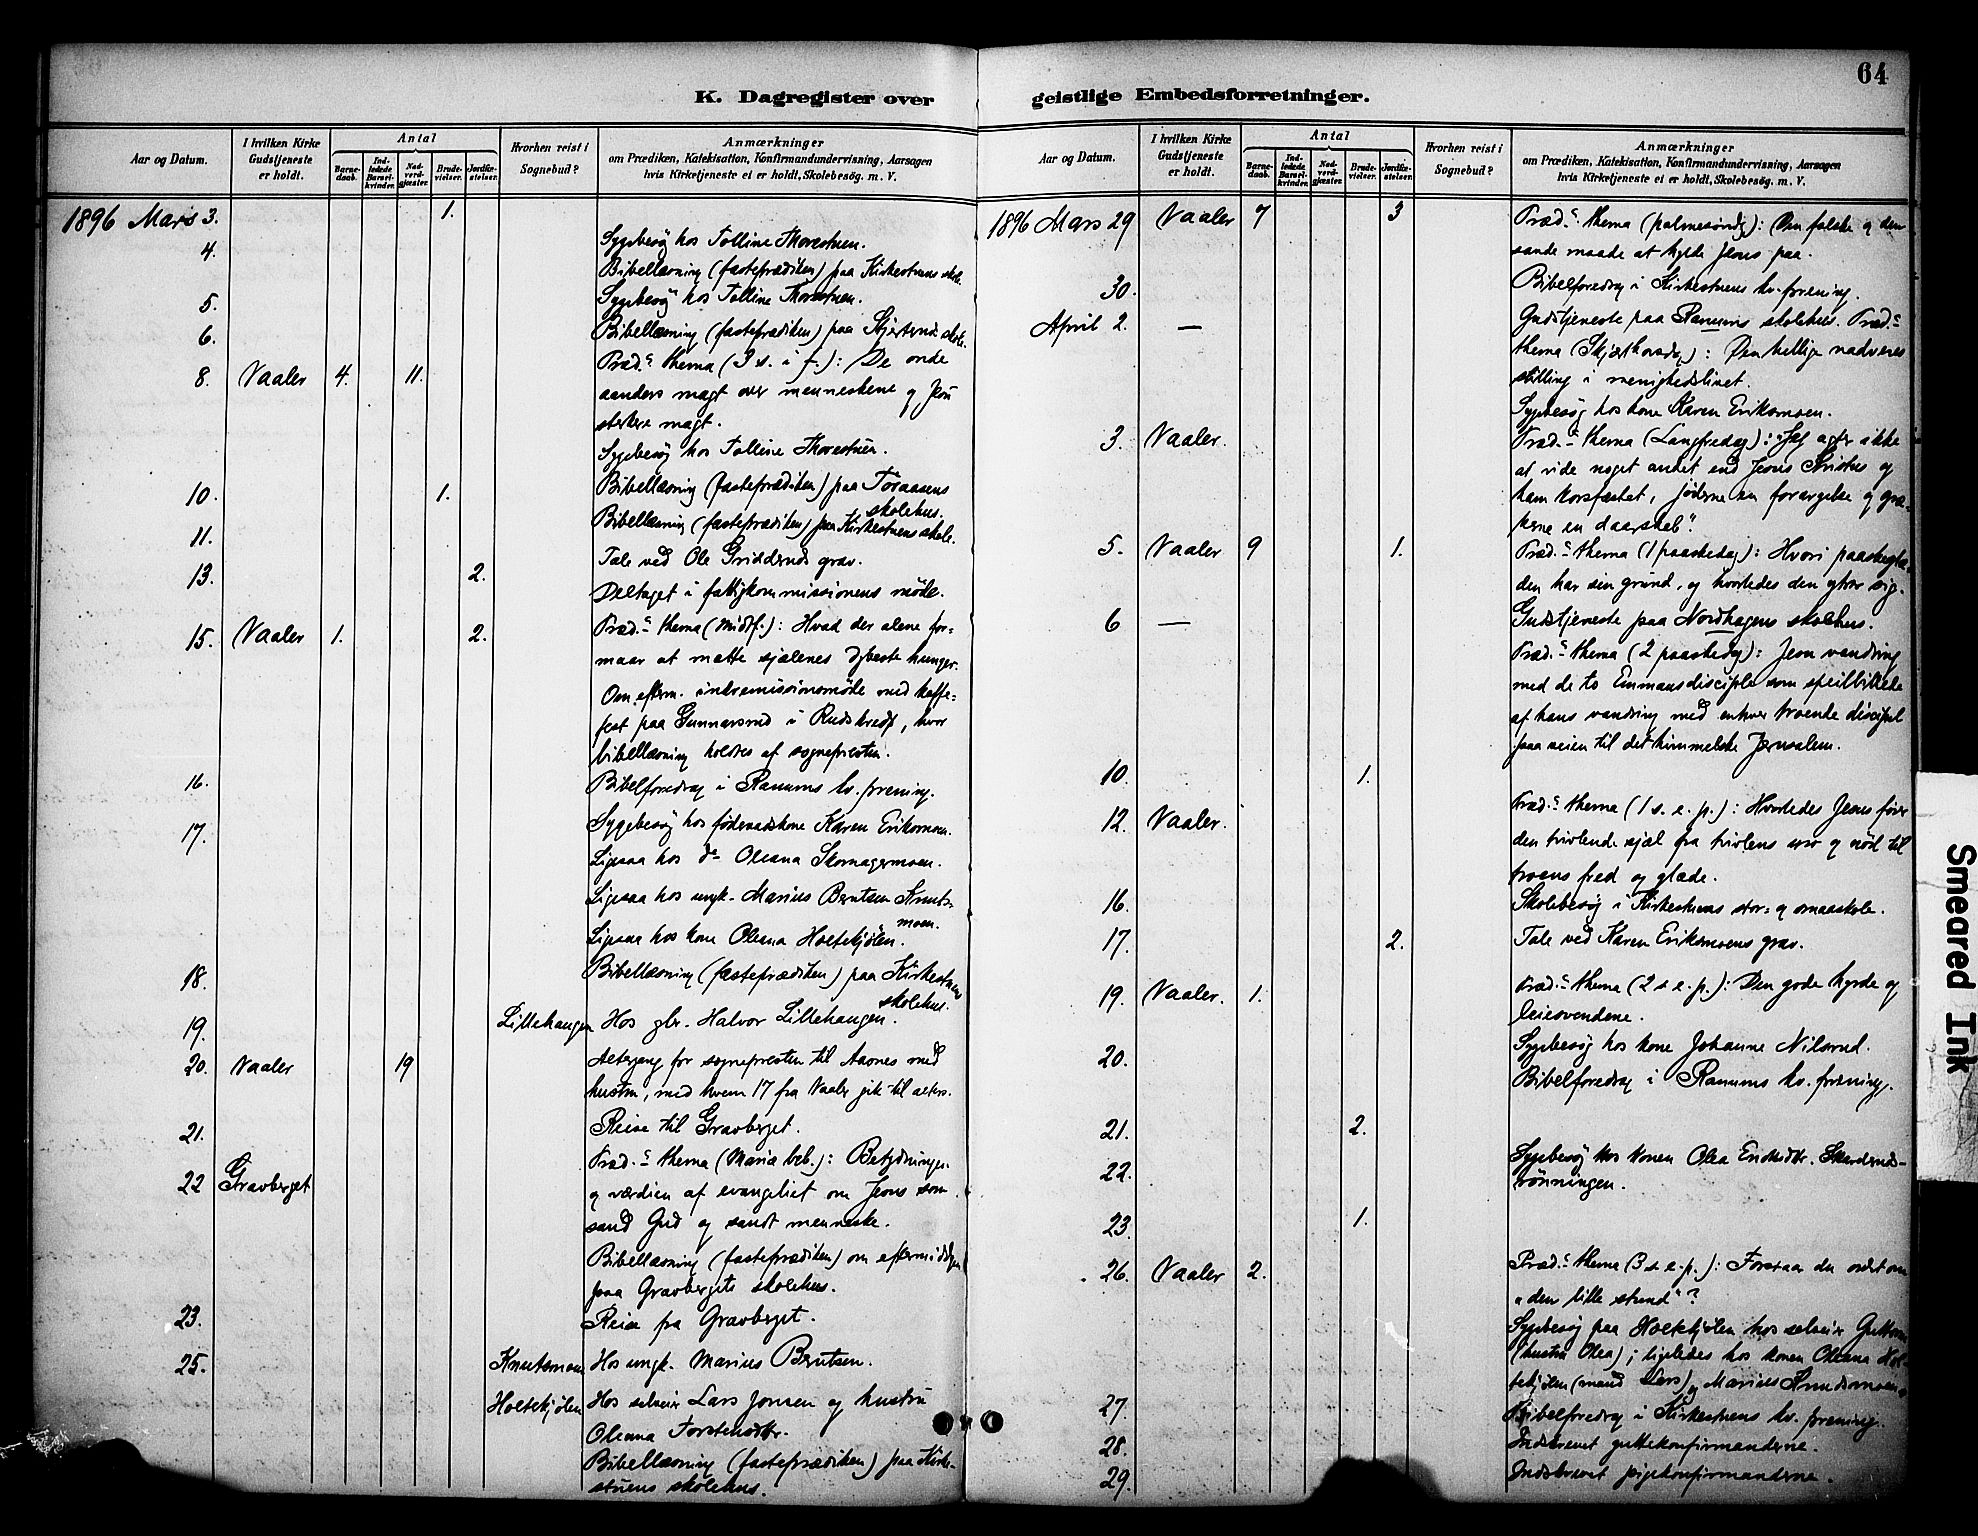 64
K. Dagregister over
geistlige Embedsforretninger.
Aar og Datum.
I hvilken Kirke Gudstjeneste er holdt.
Antal
Barnedaab.
Indledede Barselkvinder.
Nadverdgjæster.
Brudevielser.
Jordfæstelser.
Hvorhen reist i Sognebud?
Anmærkninger
om Prædiken, Katekisation, Konfirmandundervisning, Aarsagen
hvis Kirketjeneste ei er holdt, Skolebesøg. m. V.
1896 Mars 3. 1.
Sygebesøg hos Tolline Thorestuen.
4.
Bibellæsning (fasteprædiken) paa Kirkestuens skole.
5. Sygebesøg hos Tolline Thorestuen.
6. Bibellæsning (fasteprædiken) paa skole.
8. Vaaler 4. 11. Præd.s thema (3 s. i f.): De onde
aanders magt over menneskene og Jesu
sterkere magt.
Sygebesøg hos Tolline Thorestuen.
10. 1. Bibellæsning (fasteprædiken) paa Toraasens
skolehus.
11. Bibellæsning (fasteprædiken) paa Kirkestuens skole.
13. 2. Tale ved Ole Gridderuds grav.
Deltaget i fattigkommissionens møde.
15. Vaaler 1. 2. Præd.s thema (Midtf.): Hvad der alene for=
maar at mætte sjælenes dybeste hunger.
Om efterm. indremissionsmøde med kaffe=
fest paa Gunnarsrud i Rudskreds, hvor
bibellæsning holdtes af sognepresten.
16. Bibelforedrag i Ranums kv. forening.
17. Sygebesøg hos føderaadskone Karen Eriksmoen.
Ligesaa hos do Oleana Skomagermoen.
Ligesaa hos ungk. Marius Berntsen Knuts=
moen.
Ligesaa hos kone Oleana Holtekjølen.
18. Bibellæsning (fasteprædiken) paa Kirkestuens
skolehus.
19. Lillehaugen Hos gbr. Halvor Lillehaugen.
20. Vaaler 19 Altergang for sognepresten til Aasnes med
hustru, med hvem 17 fra Vaaler gik til alters.
21. Reise til Gravberget.
22 Gravberget Præd.s thema (Maria beb.): Betydningen
og værdien af evangeliet om Jesus som
sand Gud og sandt menneske.
Bibellæsning (fasteprædiken) om eftermiddagen
paa Gravbergets skolehus.
23. Reise fra Gravberget.
25. Knutsmoen Hos ungk. Marius Berntsen.
Holtekjølen Hos selveier Lars Jonsen og hustru
Oleana Torstensdtr.
Bibellæsning (fasteprædiken) paa Kirke-
stuens skolehus.
Aar og Datum.
I hvilken Kirke Gudstjeneste er holdt.
Antal
Barnedaab.
Indledede Barselkvinder.
Nadverdgjæster.
Brudevielser.
Jordfæstelser.
Hvorhen reist i Sognebud?
Anmærkninger
om Prædiken, Katekisation, Konfirmandundervisning, Aarsagen
hvis Kirketjeneste ei er holdt, Skolebesøg. m. V.
1896 Mars 29 Vaaler 7 3 Præd.s thema (palmesøndg): Den falske og den
sande maade at hylde Jesus paa.
30. Bibelforedrag i Kirkestuens kv.forening.
April 2. — Gudstjeneste paa Ranums skolehus. Præd.s
thema (Skjærthorsdg): Den hellige nadveres
stilling i menighedslivet.
Sygebesøg hos kone Karen Eriksmoen.
3. Vaaler. Præd.s thema (Langfredag): "Jeg agter ikke
at vide noget andet end Jesus Kristus og
ham korsfæstet, jøderne en forargelse og græ=
kerne en daarskab".
5. Vaaler 9 1. Præd.s thema (1 paaskedag): Hvori paaskeglæ=
den har sin grund, og hvorledes den ytrer sig.
6 — Gudstjeneste paa Nordhagens skolehus.
Præd.s thema (2 paaskedg): Jesu vandring
med de to Emmausdisciple som speilbillede
af hans vandring med enhver troende discipel
paa veien til det himmelske Jerusalem.
10. 1.
12. Vaaler. Præd.s thema (1 s. e. p.): Hvorledes Jesus fører
den tvivlende sjæl fra tvivlens uro og nød til
troens fred og glæde.
16. Skolebesøg i Kirkestuens stor- og smaaskole.
17. 2. Tale ved Karen Eriksmoens grav.
19. Vaaler. 1. Præd.s thema (2 s. e. p.): Den gode hyrde og
leiesvendene.
20. Sygebesøg hos kone Johanne Nilsrud.
Bibelforedrag i Ranums kv. forening.
21. 2.
22. Sygebesøg hos konen Olea Endreidtr. Skarderuds=
rønningen.
23. 1.
26. Vaaler 2. Præd.s thema (3 s. e. p.): Forstaar du ordet om
"den lille stund"?
Sygebesøg paa Holtekjølen hos selveier Guttorm
(hustru Olea); ligeledes hos konen Oleana Hol-
tekjølen (mand Lars) og Marius Knudsmoen.
27. Bibelforedrag i Kirkestuens kv. forening.
28. Indskrevet guttekonfirmanderne.
29. Indskrevet pigekonfirmanderne.
Smeared Ink